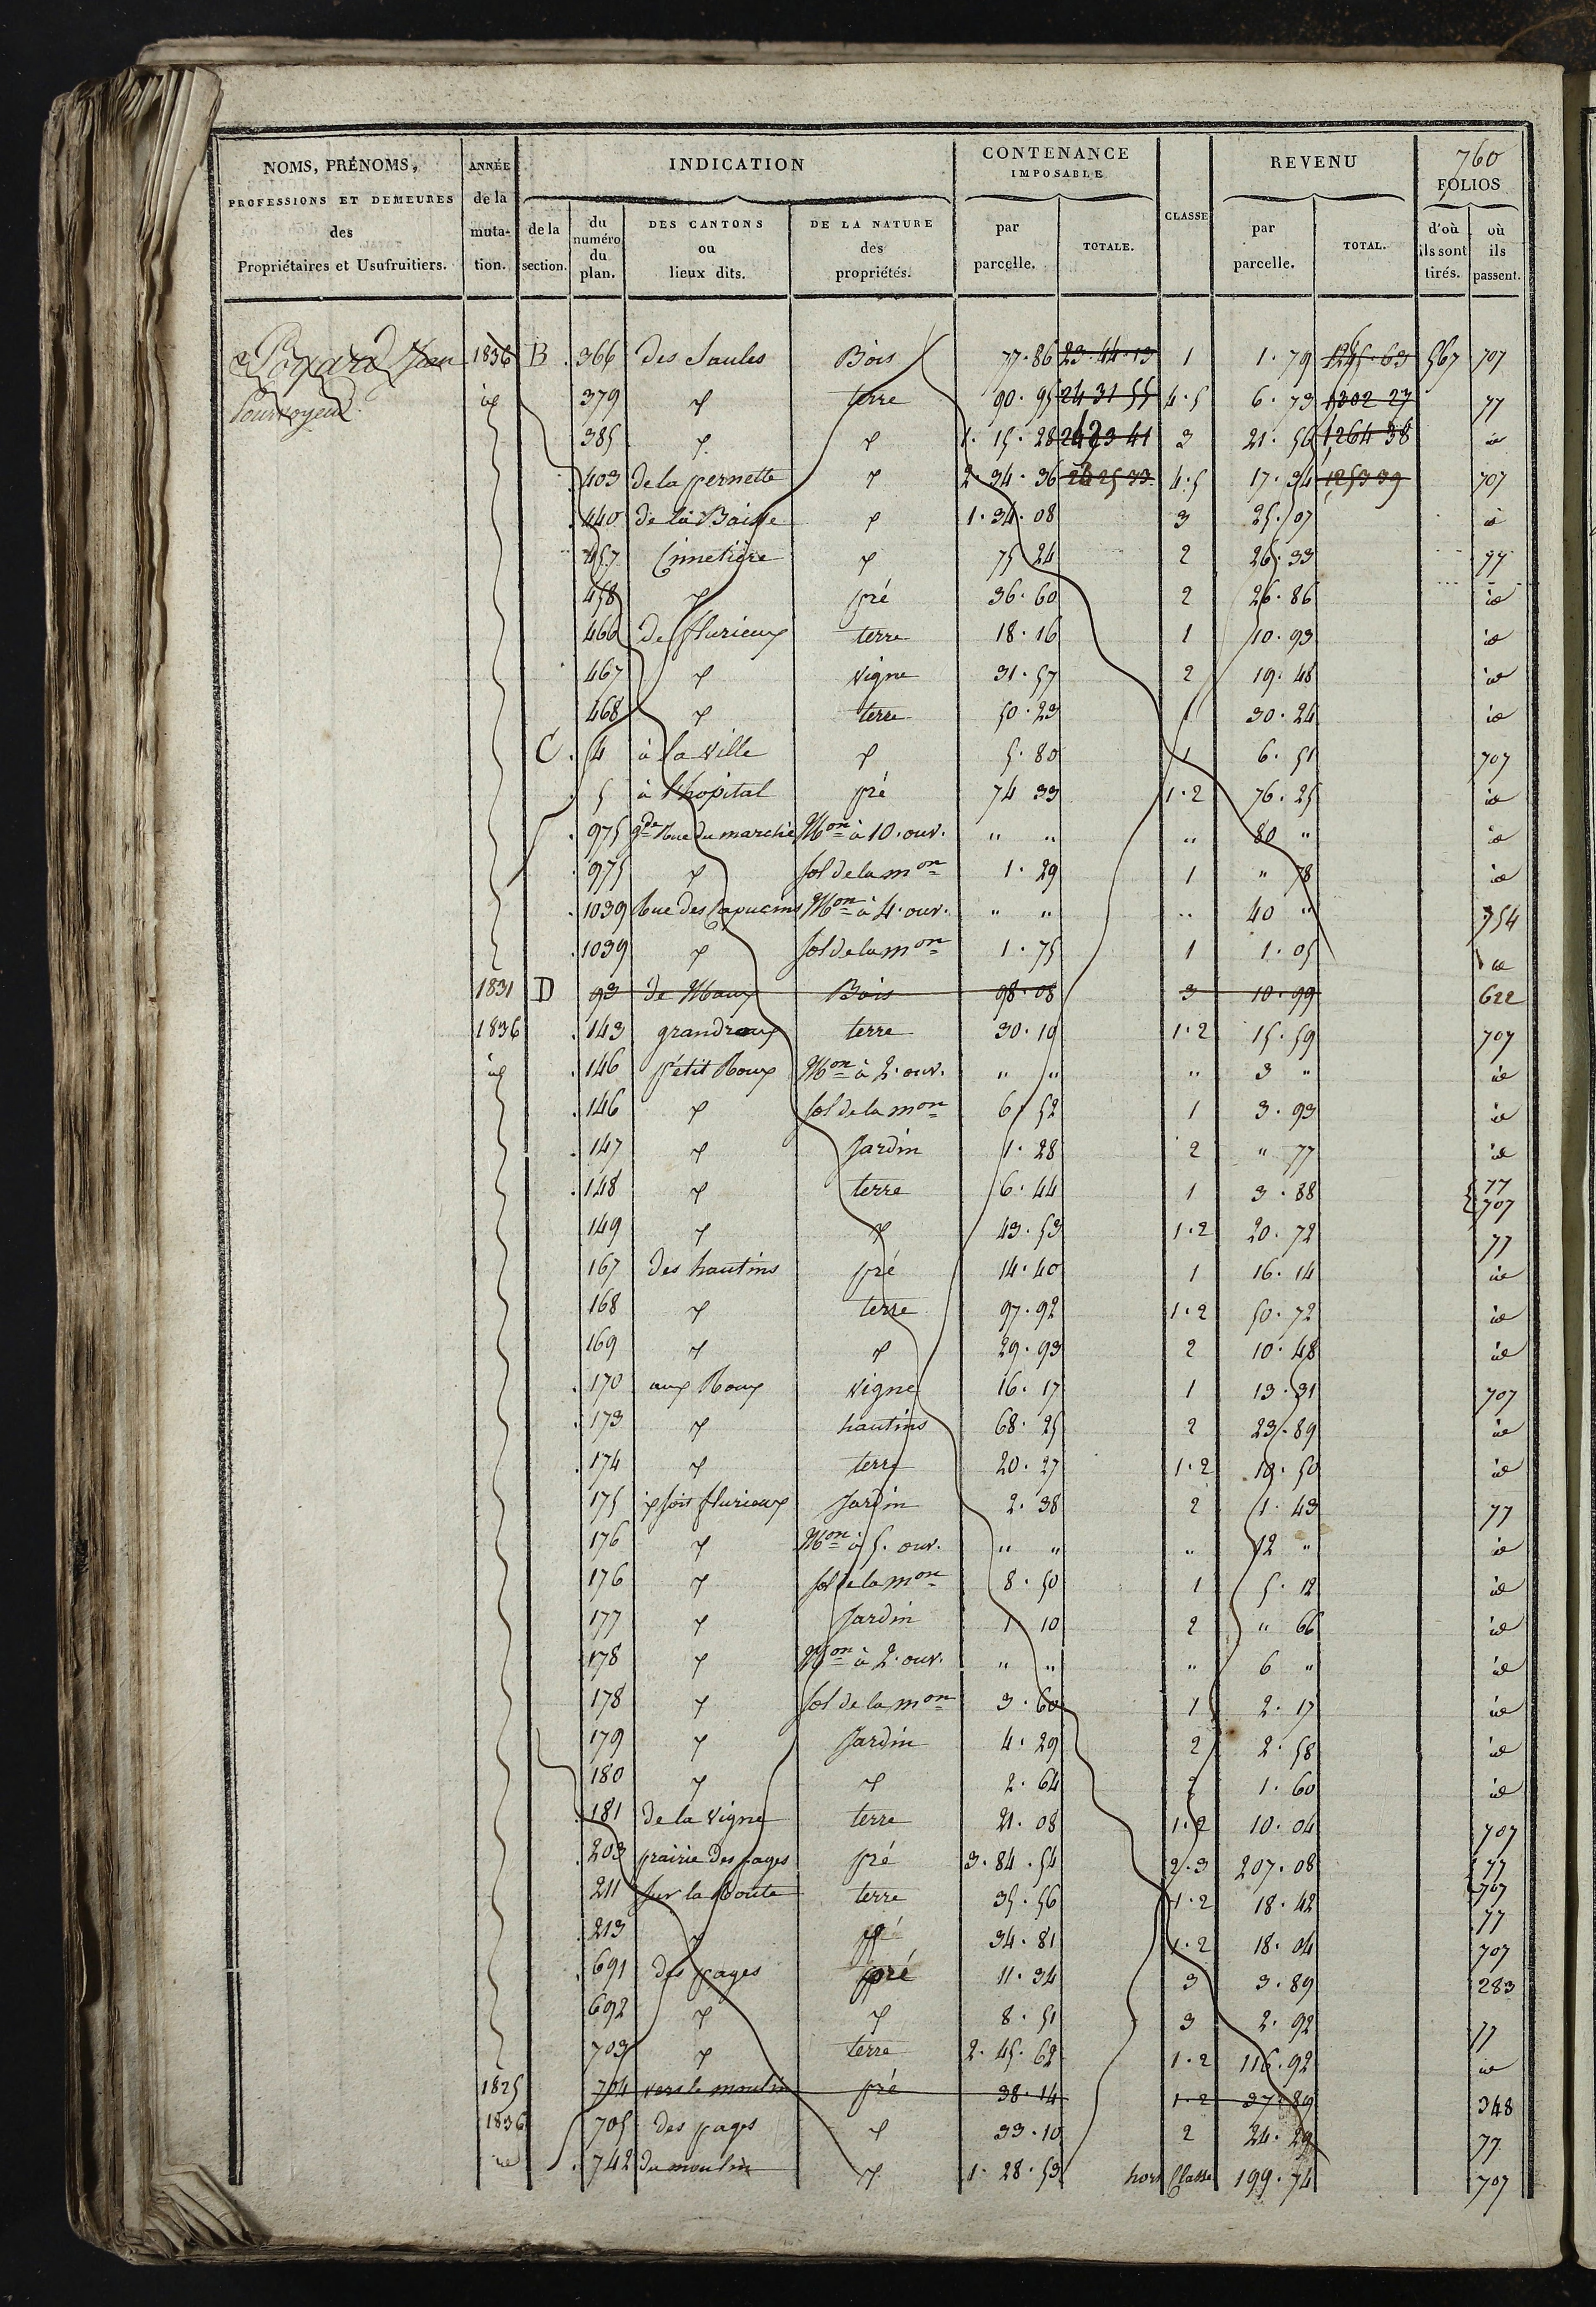 760
NOMS, PRÉNOMS, PROFESSIONS ET DEMEURES des Propriétaires et Usufruitiers.
ANNÉE de la muta-tion.
INDICATION
de la section.
du numéro du plan.
DES CANTONS ou lieux dits.
DE LA NATURE des propriétés.
CONTENANCE IMPOSABLE
par parcelle.
TOTALE.
CLASSE
REVENU
par parcelle.
TOTAL.
FOLIOS
d'où ils sont tirés.
où ils passent.
1836 B 366 des Saules Bois 77.86 23.44.13 1 1.79 1245.63 567 707
Pourvoyeur id 379 " terre 90.95 24 31 55 4.5 6.73 1302 27 77
385 " " 1.15.28 3 21.56 1264 38 id
403 de la pernette " 2.34.36 4.5 17.34 1253 39 707
440 de la Baisse " 1.34.08 3 25.07 id
457 Cimetière " 75 24 2 26.33 77
458 " pré 36.60 2 26.86 id
466 de flurieux terre 18.16 1 10.93 id
467 " vigne 31.57 2 19.48 id
468 " terre 50.23 1 30.24 id
C. 4 à la ville " 5.80 1 6.51 707
5 à l'hopital pré 74 33 1.2 76.25 id
975 gde Rue du marché Mon à 10. ouv. " " " 80 " id
975 " sol de la mon 1.29 1 " 78 id
1039 Rue des Capucins Mon à 4. ouv. " " " 40 " 754
1039 " sol de la mon 1.75 1 1.05 id
1831 D 93 de Bois 98.08 3 10.99 622
1836 143 grand roux terre 30.19 1.2 15.59 707
id 146 petit Roux Mon à 2. ouv. " " " 3 " id
146 " sol de la mon 6.52 1 3.93 id
147 " Jardin 1.28 2 " 77 id
148 " terre 6.44 1 3.88 77 707
149 " " 43.53 1.2 20.72 77
167 des hautins pré 14.40 1 16.14 id
168 " terre 97.92 1.2 50.72 id
169 " " 29.93 2 10.48 id
170 aux Roux vigne 16.17 1 13.31 707
173 " hautins 68.25 2 23.89 id
174 " terre 20.27 1.2 10.50 id
175 flurieux Jardin 2.38 2 1.43 77
176 " Mon à 5. ouv. " " " 12 " id
176 " sol de la mon 8.50 1 5.12 id
177 " Jardin 1 10 2 " 66 id
178 " Mon à 2. ouv. " " " 6 " id
178 " sol de la mon 3.60 1 2.17 id
179 " Jardin 4.29 2 2.58 id
180 " " 2.64 2 1.60 id
181 de la vigne terre 21.08 1.2 10.04 707
203 prairie des pages pré 3.84.54 2.3 207.08 77 707
211 sur la Route terre 35.56 1.2 18.42 77
213 " 34.81 1.2 18.04 707
691 des pages pré 11.34 3 3.89 283
692 " " 8.51 3 2.92 77
703 " terre 2.45.62 1.2 116.92 id
1825 704 vers le moulin pré 38.14 1.2 37.89 348
1836 705 des pages " 33.10 2 24.29 77
id 742 du moulin " 1.28.53 hors Classe 199.74 707